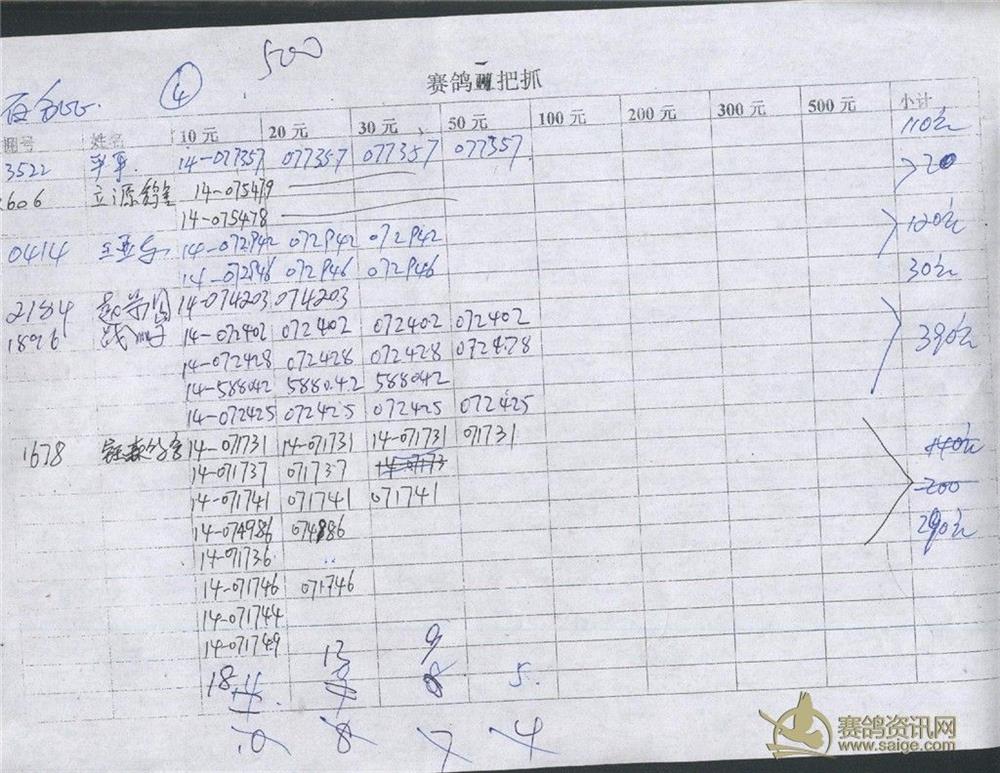 500
④
赛鸽 一把抓
棚号 姓名 10元 20元 30元 50元 100元 200元 300元 500元 小计
3522 14-077357 077357 077357 077357 110元
606 立源鸽舍 14-075479 20
14-075478
0414 14-072942 072942 072942 120元
14-072946 072946 072946
2184 14-074203 074203 30元
1896 14-072402 072402 072402 072402
14-072428 072428 072428 072428 390元
14-588042 588042 588042
14-072425 072425 072425 072425
1678 14-071731 14-071731 14-071731 071731 140元
14-071737 071737 14-07173
14-071741 071741 071741 200
14-074986 074986 290元
14-071736
14-071746 071746
14-071744
14-071749
13 9
18 5.
10 8 7 4
赛鸽资讯网
www.saige.com